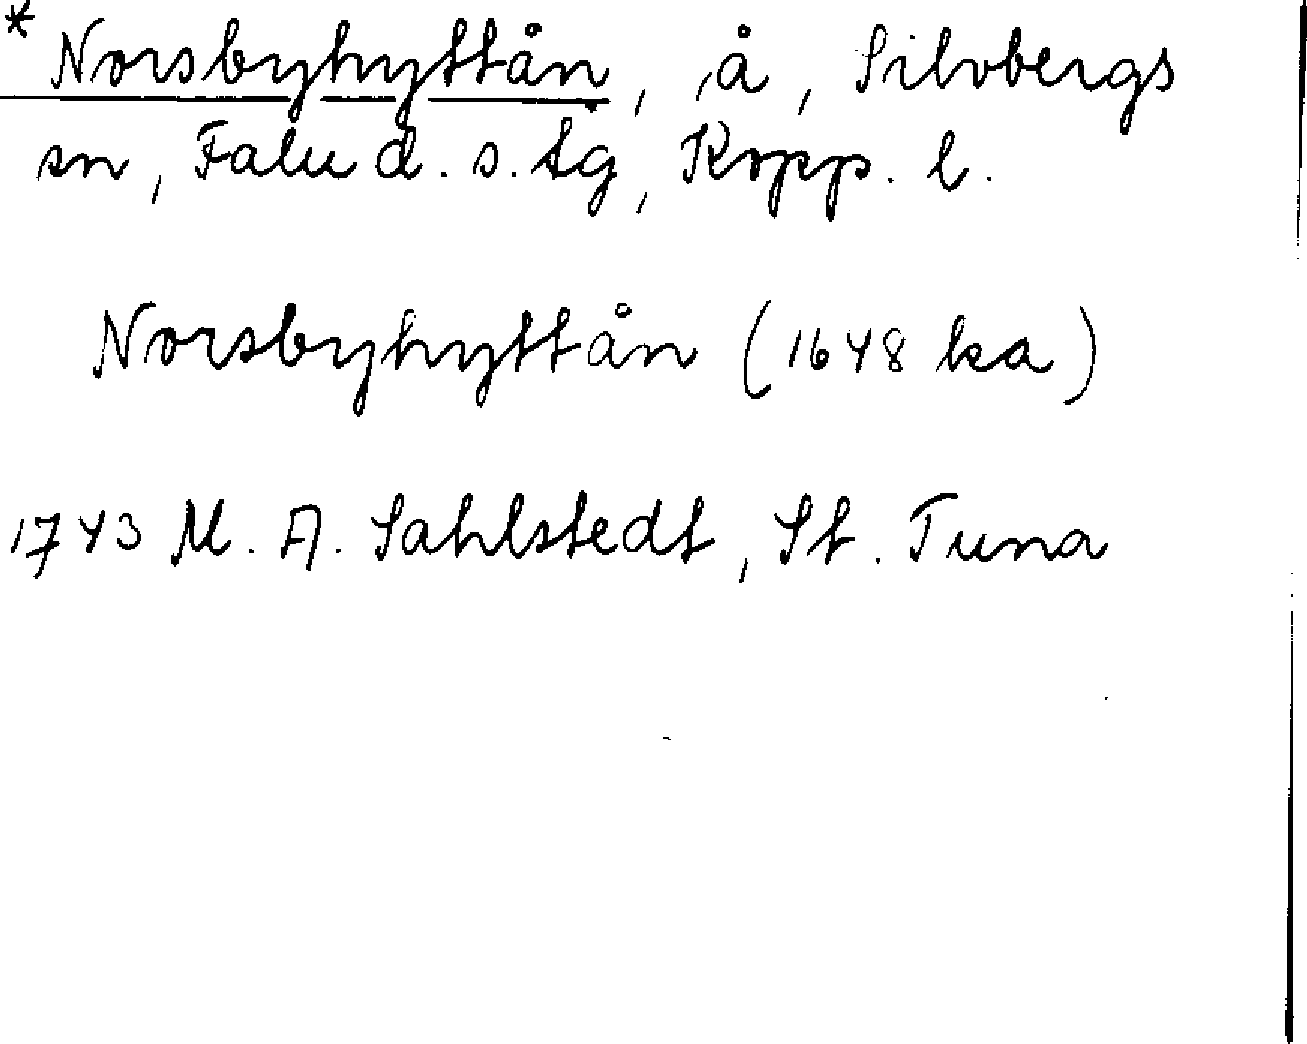 * Norsbyhyttån, å, Silvbergs
sn, Falu d. s. tg, Kopp. l.
Norsbyhyttån (1648 ka)
1743 M. A. Sahlstedt, St. Tuna